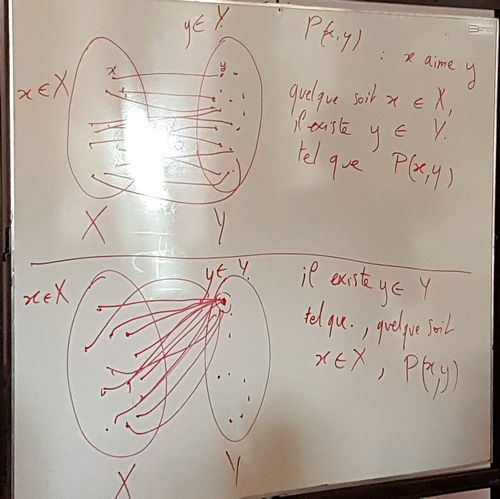 y ∈ Y
P(x,y)
: x aime y
x ∈ X
x
y
quelque soit x ∈ X,
il existe y ∈ Y.
tel que P(x,y)
X
Y
x ∈ X
y ∈ Y
il existe y ∈ Y
tel que, quelque soit
x ∈ X, P(x,y)
X
Y